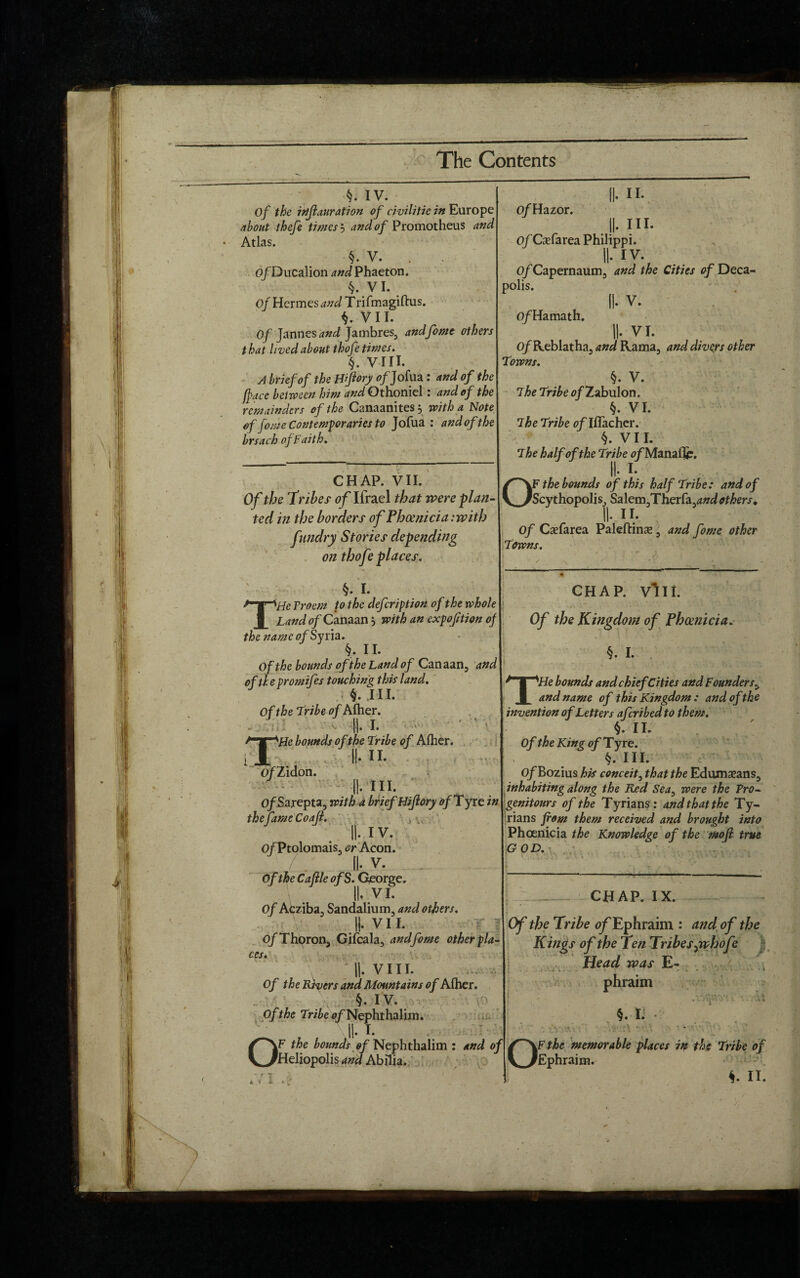 The Contents
§. IV.
Of the inſtauration of civilitie in Europe
about theſe times; and of Promotheus and
Atlas.
§. V.
Of Ducalion and Phaeton.
§. VI.
Of Hermes and Triſmagiſtus.
§. VII.
Of Jannes and Jambres, and ſome others
that lived about thoſe times.
§. VIII.
A brief of the Hiſtory of Joſua: and of the
ſpace between him and Othoniel: and of the
remainders of the Canaanites; with a Note
of ſome Contemporaries to Joſua: and of the
breach of Faith.
CHAP. VII.
Of the Tribes of Iſrael that were plan-
ted in the borders of Phœnicia: with
ſundry Stories depending
on thoſe places.
§. I.
THe Proem to the deſcription of the whole
Land of Canaan; with an expoſition of
the name of Syria.
§. II.
Of the bounds of the Land of Canaan, and
of the promiſes touching this land.
§. III.
Of the Tribe of Aſher.
||. I.
THe bounds of the Tribe of Aſher.
||. II.
Of Zidon.
||. III.
Of Sarepta, with a brief Hiſtory of Tyre in
the ſame Coaſt.
||. IV.
Of Ptolomais, or Acon.
||. V.
Of the Caſtle of S. George.
||. VI.
Of Acziba, Sandalium, and others.
||. VII.
Of Thoron, Giſcala, and ſome other pla-
ces.
||. VIII.
Of the Rivers and Mountains of Aſher.
§. IV.
Of the Tribe of Nephthalim.
||. I.
OF the bounds of Nephthalim: and of
Heliopolis and Abilia.
||. II.
Of Hazor.
||. III.
Of Cæſarea Philippi.
||. IV.
Of Capernaum, and the Cities of Deca-
polis.
||. V.
Of Hamath.
||. VI.
Of Reblatha, and Rama, and divers other
Towns.
§. V.
The Tribe of Zabulon.
§. VI.
The Tribe of Iſſacher.
§. VII.
The half of the Tribe of Manaſſe.
||. I.
OF the bounds of this half Tribe: and of
Scythopolis, Salem, Therſa, and others.
||. II.
Of Cæſarea Paleſtinæ, and ſome other
Towns.
CHAP. VIII.
Of the Kingdom of Phœnicia.
§. I.
THe bounds and chief Cities and Founders,
and name of this Kingdom: and of the
invention of Letters aſcribed to them.
§. II.
Of the King of Tyre.
§. III.
Of Bozius his conceit, that the Edumæans,
inhabiting along the Red Sea, were the Pro-
genitours of the Tyrians: and that the Ty-
rians from them received and brought into
Phœnicia the Knowledge of the moſt true
GOD.
CHAP. IX.
Of the Tribe of Ephraim: and of the
Kings of the Ten Tribes, whoſe
Head was E-
phraim
§. I.
OF the memorable places in the Tribe of
Ephraim.
§. II.